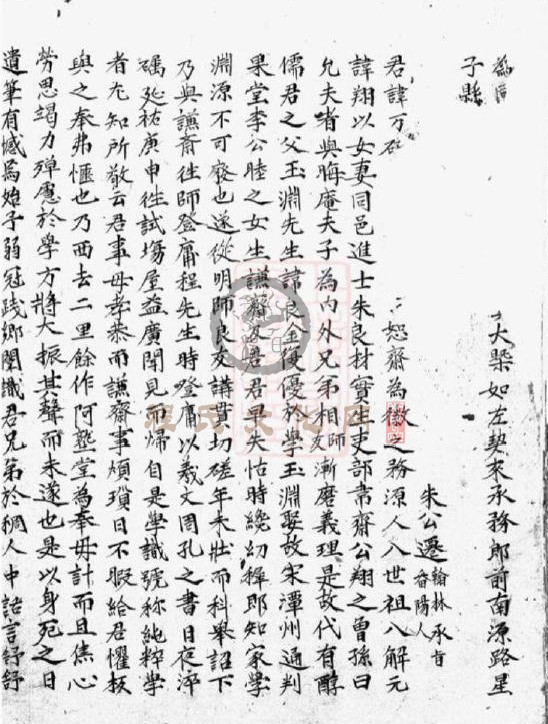 大槩如左契家承務郎前南源路星
子縣
朱公遷翰林承旨
番陽人
君諱万
恕齋為徽之務源人八世祖八解元
諱翔以女妻同邑進士朱良材實生吏部韋齋公翔之曾孫曰
允夫者與晦庵夫子為内外兄弟相師友漸磨義理是故代有醇
儒君之父玉淵先生諱良金復優於學玉淵娶故宋潭州通判
果堂李公睦之女生謙齋及君君早失怙時纔幼穉即知家學
淵源不可廢也遂從明師良友講劘切磋年未壯而科舉詔下
乃與謙齋徃師登庸程先生時登庸以羲文周孔之書日夜淬
礪延祐庚申徃試塲屋益廣聞見而歸自是學識號称純粹學
者尤知所敬云君事母孝恭而謙齋事煩瑣日不暇給君懼
與之奉弗愜也乃西去二里餘作阿堂為奉母計而且焦心
勞思竭力殫慮於學方將大振其聲而未遂也是以身死之日
遺筆有憾為始予弱冠践鄉闈識君兄弟於稠人中語言紓舒